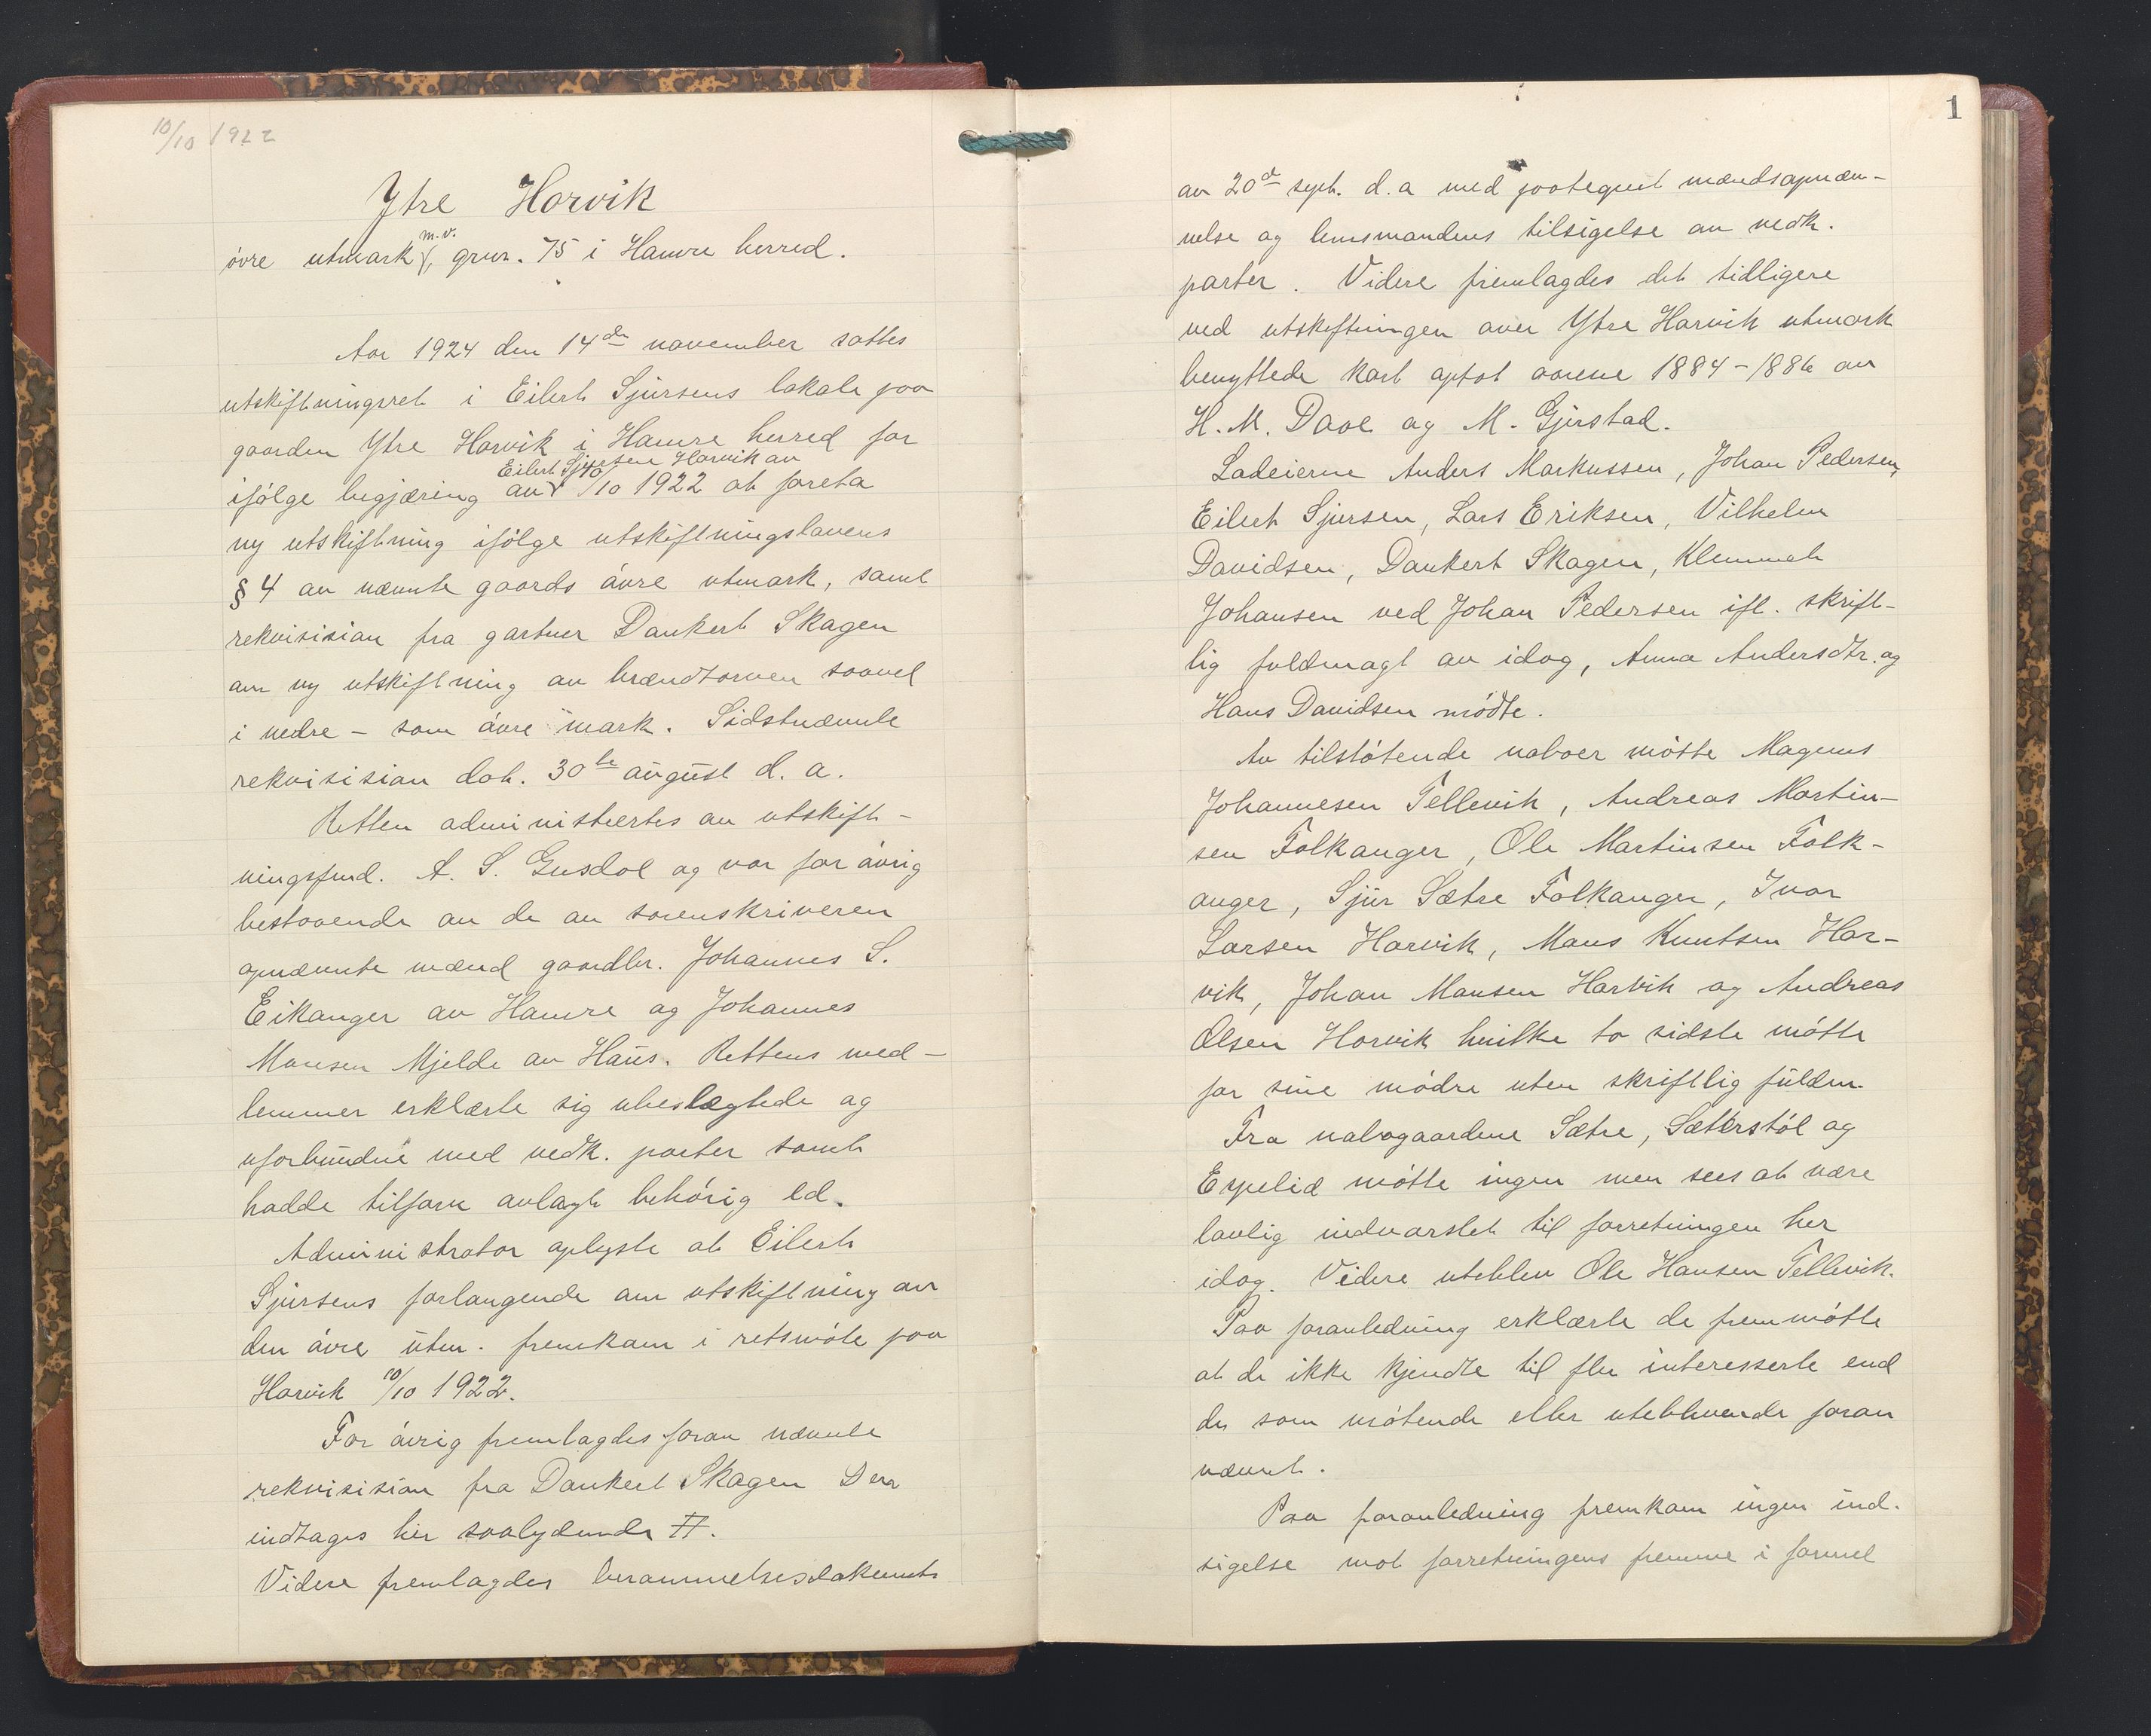 10/10 1922
Ytre Horvik
øvre utmark m.v., grnr. 75 i Hamre herred.
Aar 1924 den 14de november sattes
utskiftningsret i Eilert Sjursens lokale paa
gaarden Ytre Horvik i Hamre herred for
ifølge begjæring av Eilert Sjursen Horvik av 10/10 1922 at foreta
ny utskiftning ifølge utskiftningslovens
§ 4 av nævnte gaards øvre utmark, samt
rekvisision fra gartner Dankert Skagen
om ny utskiftning av brændtorven saavel
i nedre - som øvre mark. Sidstnævnte
rekvisision dat. 30te august d. a.
Retten administrertes av utskift-
ningsfmd. A. S. Gusdal og var for øvrig
bestaaende av de av sorenskriveren
opnævnte mænd gaardbr. Johannes S.
Eikanger av Hamre og Johannes
Monsen Mjelde av Haus. Rettens med-
lemmer erklærte sig ubeslægtede og
uforbundne med vedk. parter samt
hadde tilforn avlagt behørig ed.
Administrator oplyste at Eilert
Sjursens forlangende om utskiftning av
den øvre utm. fremkom i retsmøte paa
Horvik 10/10 1922.
For øvrig fremlagdes foran nævnte
rekvisision fra Dankert Skagen Den
indtages her saalydende #.
Videre fremlagdes berammelsesdokument
1
av 20de sept. d.a med paategnet mændsopnæv-
nelse og lensmandens tilsigelse av vedk.
parter. Videre fremlagdes det tidligere
ved utskiftningen over Ytre Horvik utmark
benyttede kart optat aarene 1884-1886 av
H. M. Daae og M. Gjerstad.
Lodeierne Anders Markussen, Johan Pedersen,
Eilert Sjursen, Lars Eriksen, Vilhelm
Davidsen, Dankert Skagen, Klemmet
Johansen ved Johan Pedersen ifl. skrift-
lig fuldmagt av idag, Anna Andersdtr. og
Hans Davidsen mødte.
Av tilstøtende naboer møtte Magnus
Johannesen Tellevik, Andreas Martin-
sen Falkanger, Ole Martinsen Falk-
anger, Sjur Sætre Falkanger, Ivar
Larsen Horvik, Mons Knutsen Hor-
vik, Johan Monsen Horvik og Andreas
Olsen Horvik hvilke to sidste møtte
for sine mødre uten skriftlig fuldm.
Fra nabogaardene Sætre, Sæterstøl og
Erpelid møtte ingen men sees at være
lovlig indvarslet til forretningen her
idag. Videre uteblev Ole Hansen Tellevik.
Paa foranledning erklærte de fremmøtte
at de ikke kjendte til fler interesserte end
de som møtende eller uteblivende foran
nævnt.
Paa foranledning fremkom ingen ind-
sigelse mot forretningens fremme i formel